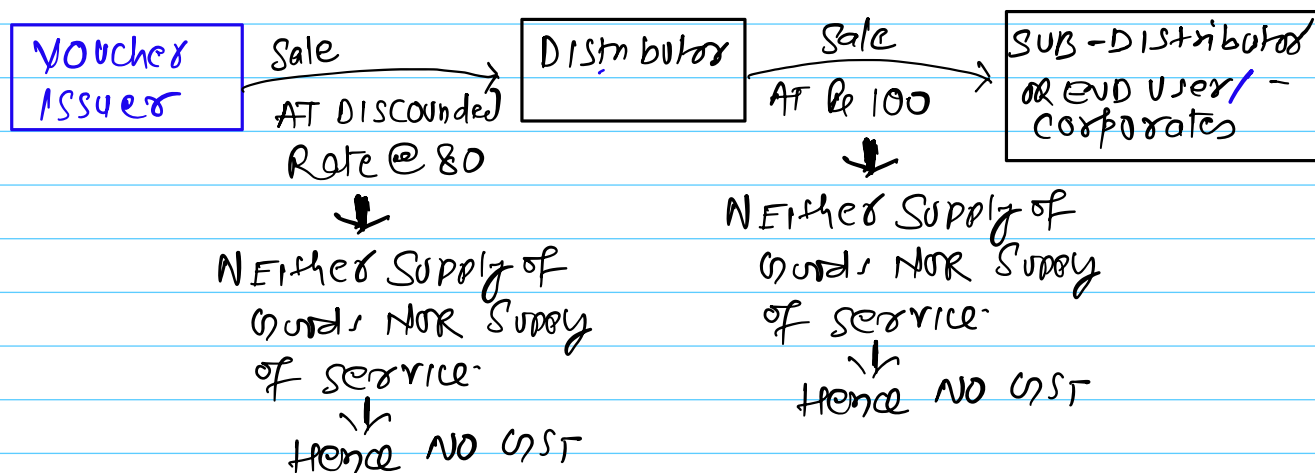 Voucher
Issuer
Sale
AT DISCOUNDED
Rate @ 80
Neither Supply of
Goods NOR Suppy
of service.
Hence NO GST
Distributor
Sale
AT Re 100
Neither Supply of
Goods NOR Suppy
of service.
Hence NO GST
SUB-Distributor
OR END User/-
Corporates